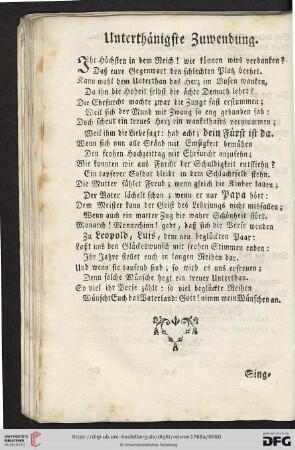 Unterthänigste Zuwendung.
Ihr Höchsten in dem Reich! wie können wirs verdanken?
Daß eure Gegenwart den schlechten Platz beehrt.
Kann wohl dem Unterthan das Herz im Busen wanken,
Da ihn die Hoheit selbst die ächte Demuth lehrt?
Die Ehrfurcht machte zwar die Zunge fast erstummen;
Weil sich der Mund mit Zwang so eng gebunden sah:
Doch scheut ein treues Herz ein wankelhafts vermummen;
Weil ihm die Liebe sagt: hab acht; dein Fürst ist da.
Wenn sich nun alle Ständ mit Emsigkeit bemühen
Den frohen Hochzeittag mit Ehrfurcht anzusehn;
Wie konnten wir aus Furcht der Schuldigkeit entfliehn?
Ein tapferer Soldat bleibt in dem Schlachtfeld stehn.
Die Mutter fühlet Freud; wenn gleich die Kinder lallen;
Der Vater lächelt schon; wenn er nur Papa hört:
Dem Meister kann der Fleiß des Lehrjungs nicht mißfallen;
Wenn auch ein matter Zug die wahre Schönheit stört.
Monarch! Monarchinn! gebt, daß sich die Verse wenden
Zu Leopold, Luis, dem neu beglückten Paar:
Laßt uns den Glückswunsch mit frohen Stimmen enden:
Ihr Jahre stellet euch in langen Reihen dar.
Und wenn sie tausend sind; so wird es uns erfreuen;
Denn solche Wünsche hegt ein treuer Unterthan.
So viel ihr Verse zählt: so viel beglückte Reihen
Wünscht Euch das Vaterland: Gott! nimm mein Wünschen an.
Sing-
https://digi.ub.uni-heidelberg.de/diglit/
© Universitätsbibliothek Heidelberg